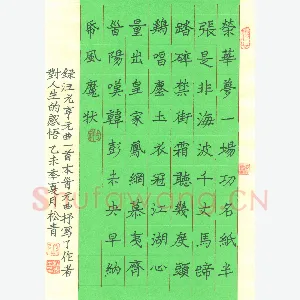 榮華夢一場功名紙半
張是非海波千丈馬蹄
踏碎禁街霜聽幾度頭
鷄唱塵土衣冠江湖心
量出皇家麟鳳網慕夷齊
首陽嘆韓彭未央早納
紙風魔狀
錄汪元亨元曲一首本首元曲抒寫了作者
對人生的感悟 乙未年夏月松青
Shufawang.cn